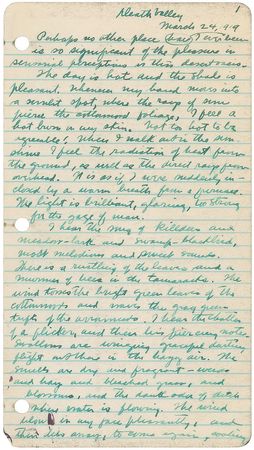 Death Valley
1
March 24, 49
Perhaps no other place that I write in
is so significant of the pleasure in
sensorial perceptions is this desert oasis.
The day is hot and the shade is
pleasant. Whenever my hand moves into
a sunlit spot, where the rays of sun
pierce the cottonwood foliage, I feel a
hot burn in my skin. Not too hot to be
agreeable. When I walk out in the sun-
shine I feel the radiation of heat from
the ground, as well as the direct rays from
overhead. It is as if I were suddenly in-
closed by a warm breath from a furnace.
The light is brilliant, glaring, too strong
for the gaze of man.
I hear the song of killdeer and
meadow-lark and swamp-blackbird,
most melodious and sweet sounds.
There is a rustling of the leaves and a
murmur of bees in the tamaracks. The
wind tosses the bright green leaves of the
cottonwoods and waves the gray green
tufts of the arrowweeds. I hear the
of a flicker, and then his piercing note.
Swallows are winging graceful darting
flight in the hazy air. The
smells are dry and fragrant - weeds
and hay and bleached grass, and
blossoms, and the dank odor of ditch
where water is flowing. The wind
blows in my face pleasantly, and
then dies away, to come again, cooling